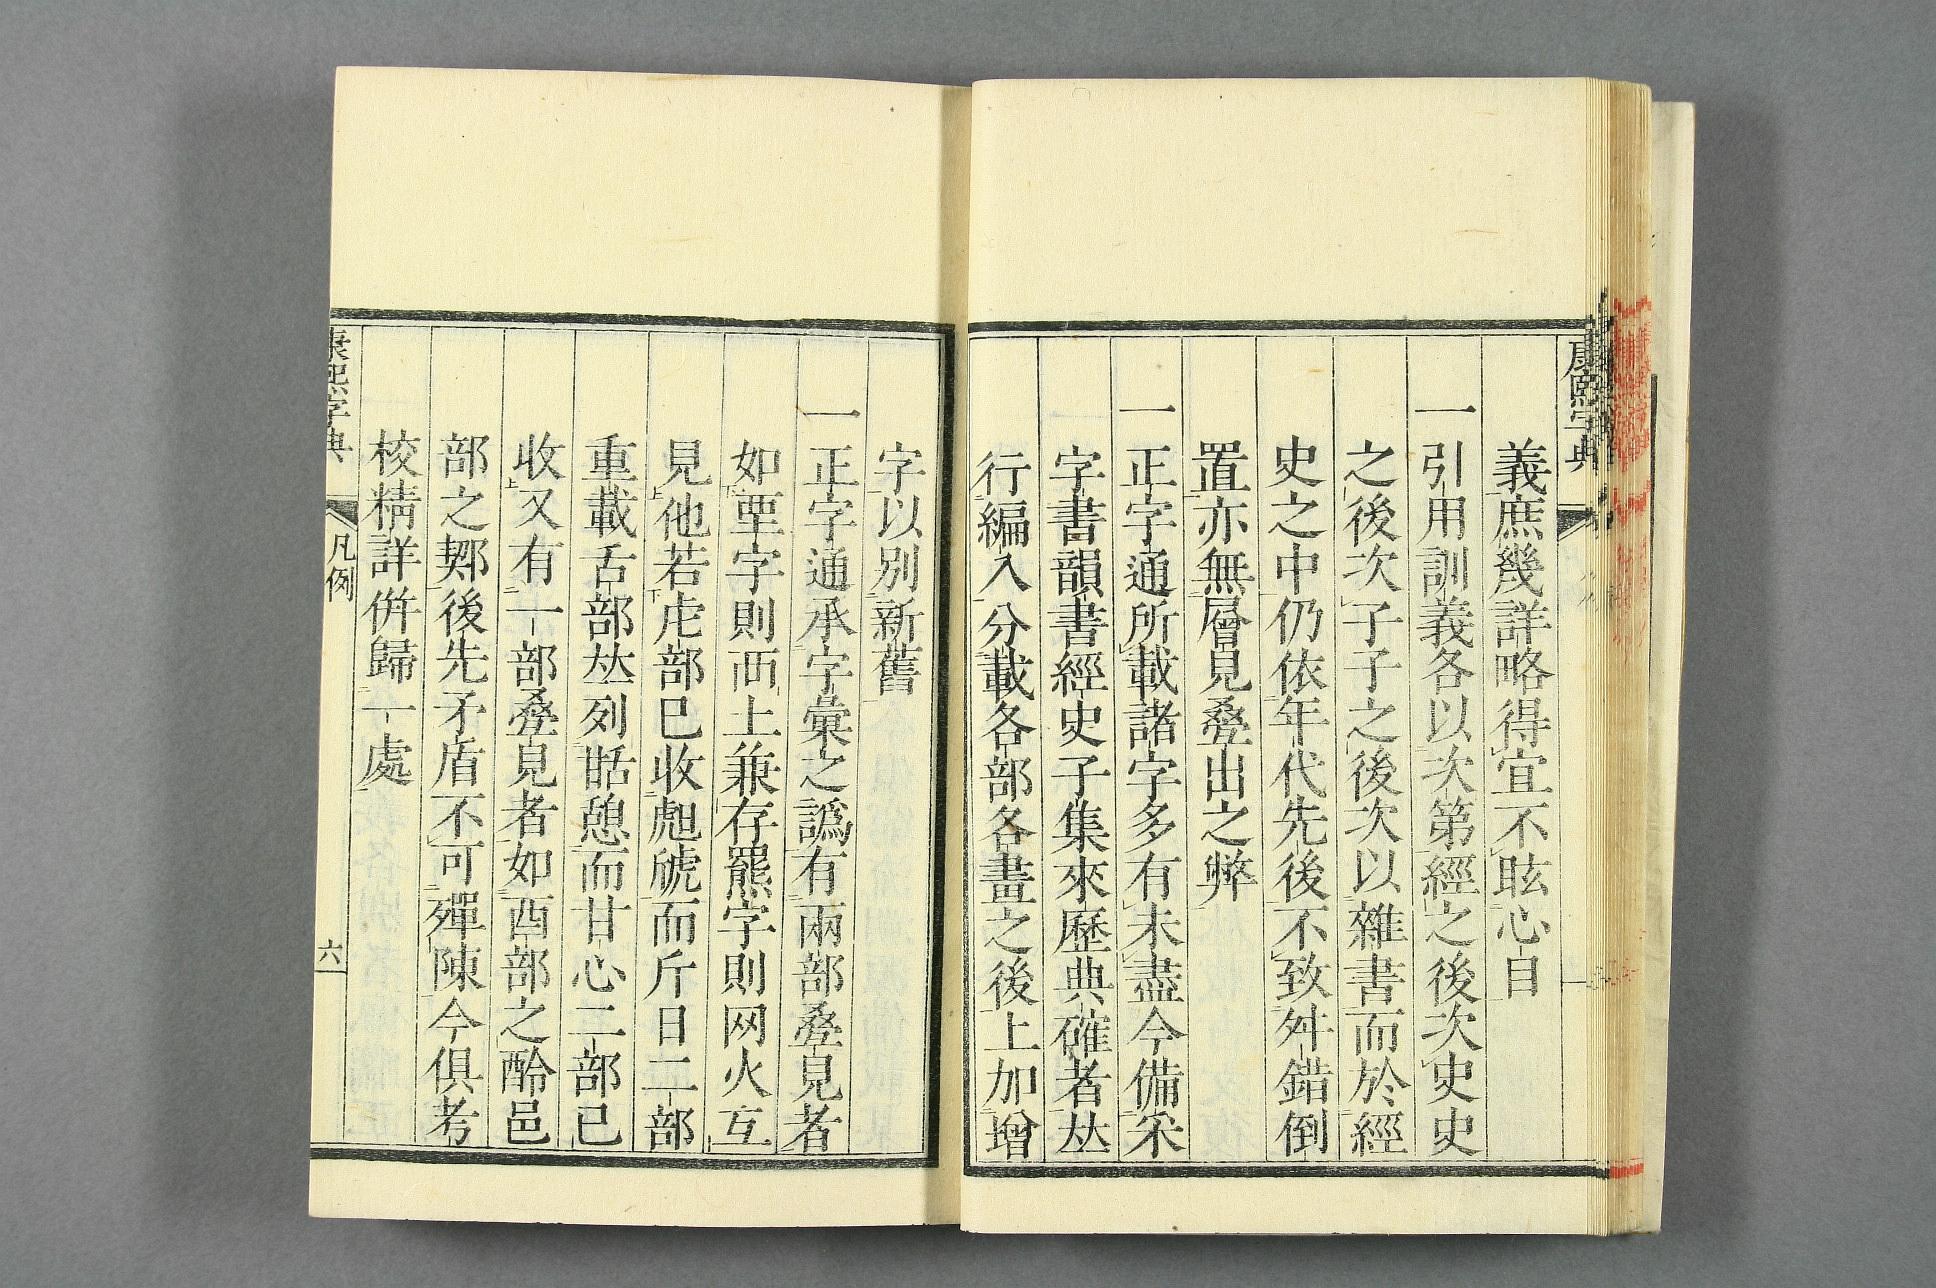 康熙字典
義庶幾詳略得宜不眩心目
一引用訓義各以次第經之後次史史
之後次子子之後次以雜書而於經
史之中仍依年代先後不致舛錯倒
置亦無層見叠出之弊
一正字通所載諸字多有未盡今備采
字書韻書經史子集來歷典確者𠀤
行編入分載各部各畫之後上加增
字以別新舊
一正字通承字彙之譌有兩部叠見者
如垔字則襾土兼存羆字則网火互
見他若虍部已收虝虓而斤日二部
重載舌部𠀤列甛憩而甘心二部已
收又有一部叠見者如酉部之酃邑
部之鄹後先矛盾不可殫陳今俱考
校精詳倂歸一處
康熙字典
凡例
六